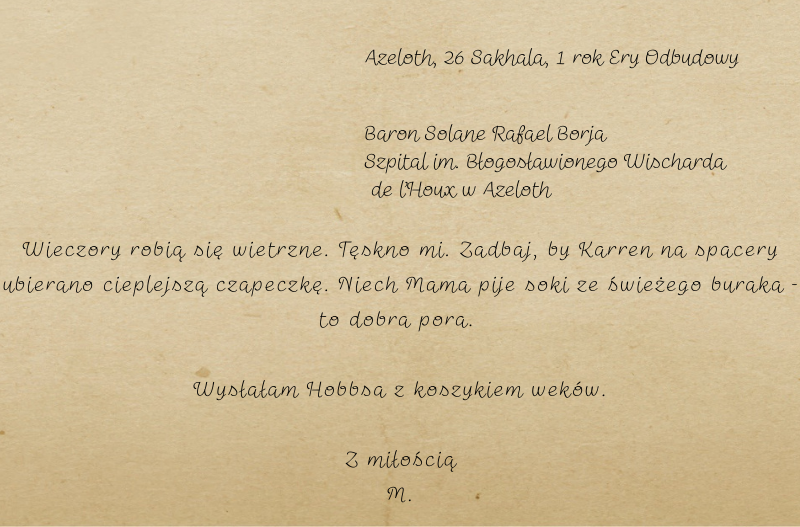 Azeloth, 26 Sakhala, 1 rok Ery Odbudowy
Baron Solane Rafael Borja
Szpital im. Błogosławionego Wischarda
de l'Houx w Azeloth
Wieczory robią się wietrzne. Tęskno mi. Zadbaj, by Karren na spacery
ubierano cieplejszą czapeczkę. Niech Mama pije soki ze świeżego buraka -
to dobra pora.
Wysłałam Hobbsa z koszykiem weków.
Z miłością
M.